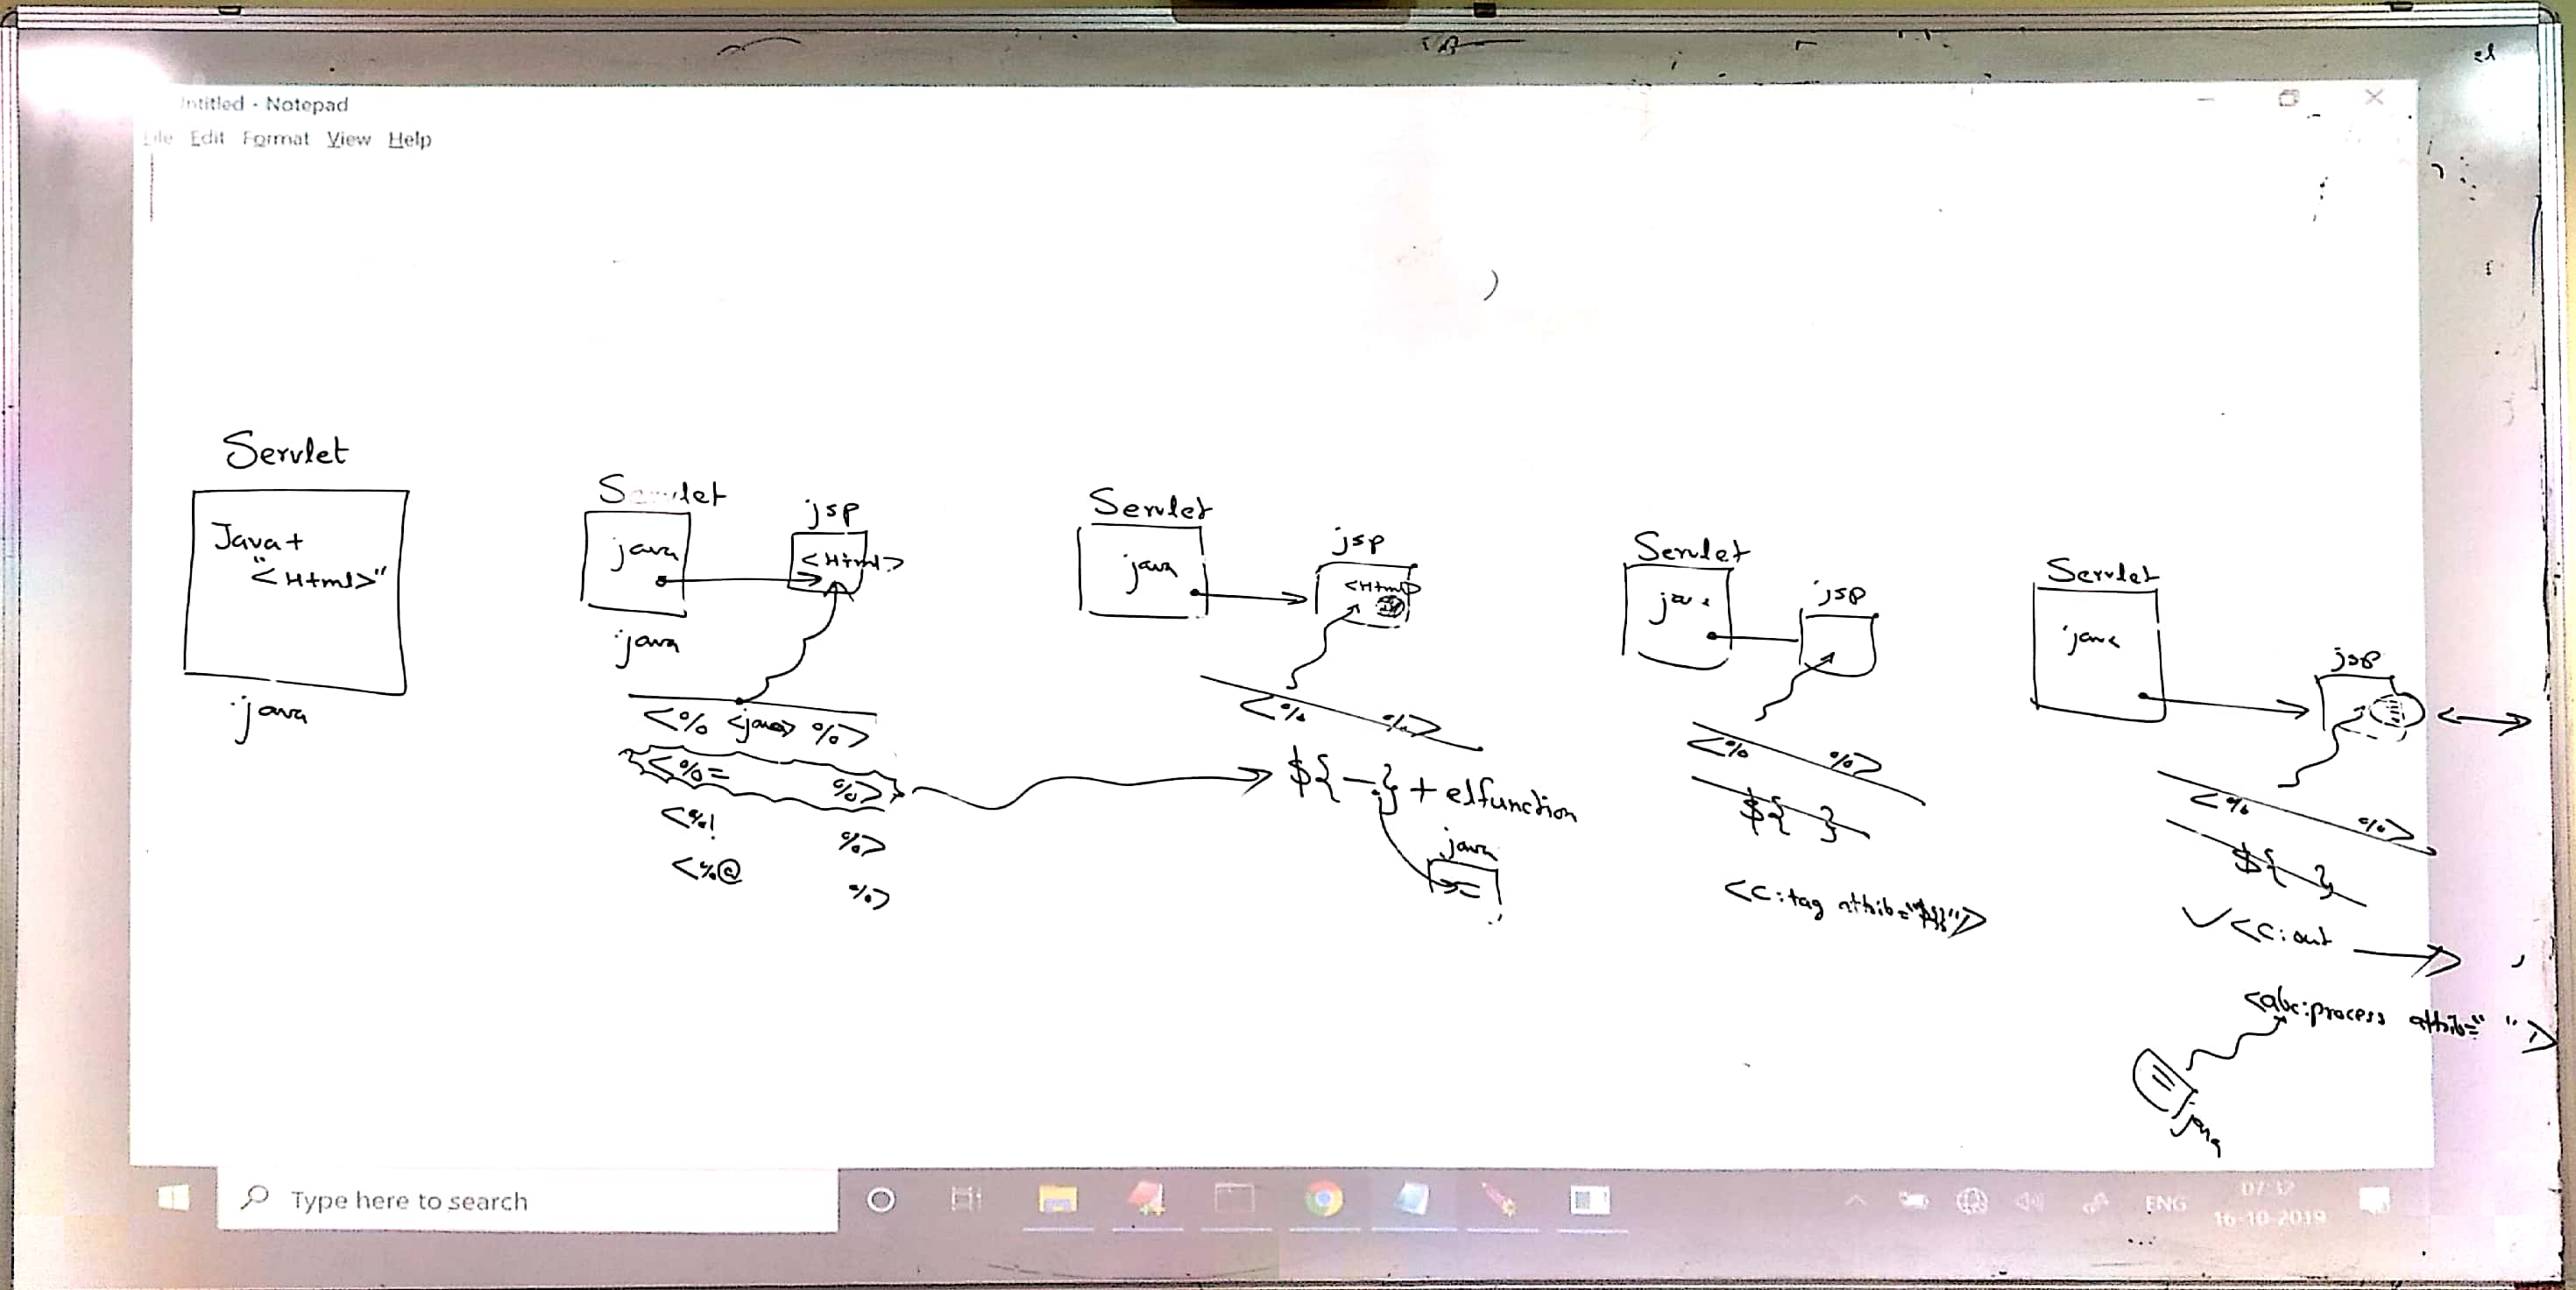 ntitled - Notepad
File Edit Format View Help
Servlet
Java+
"<Html>"
.java
Servlet
java
.java
jsp
<Html>
<% <java> %>
<%= %>
<%! %>
<%@ %>
Servlet
java
jsp
<Html>
<% %>
${-.} + elfunction
java
Servlet
jsp
<% %>
${ }
<c:tag attrib="${}">
Servlet
java
jsp
<% %>
${ }
✓ <c:out >
<abc:process attrib=" ">
.java
Type here to search
ENG
07:32
16-10-2019
el